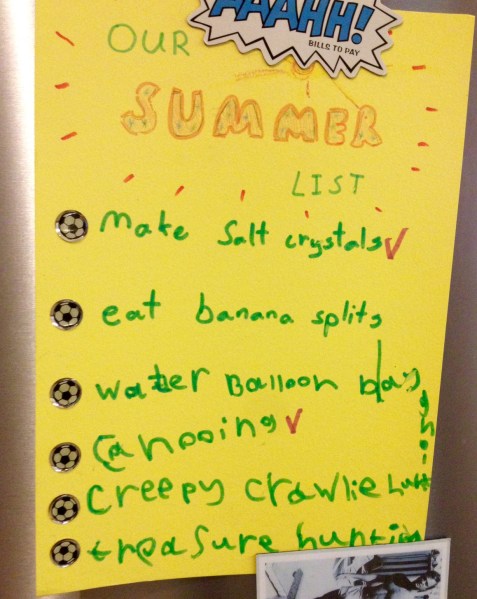 AAAHH!
BILLS TO PAY
OUR
SUMMER
LIST
make salt crystals
eat banana splits
water Balloon
canooing
creepy crawlie
treasure hunting